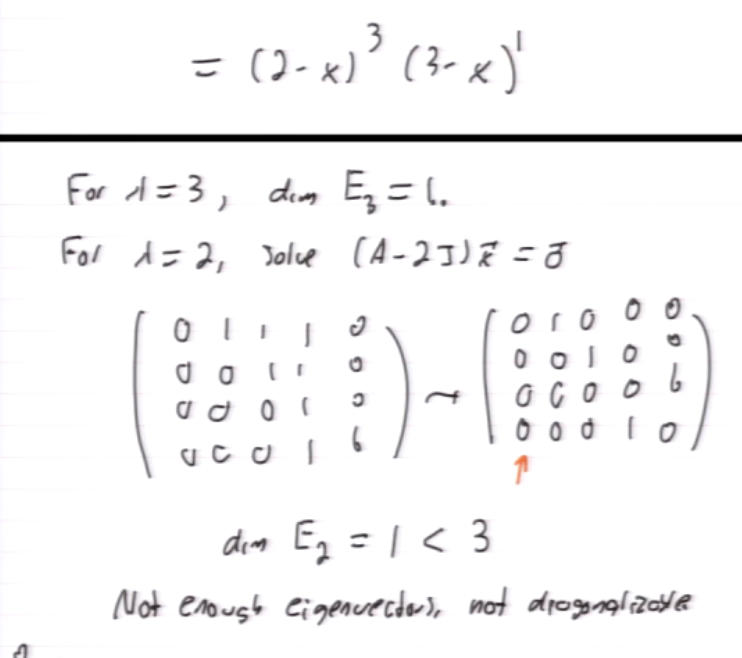 = (2-x)^3 (3-x)^1
For λ=3, dim E_3 = 1.
For λ=2, solve (A-2I)x⃗ = 0⃗
( 0 1 1 1 0 ) ~ ( 0 1 0 0 0 )
( 0 0 1 1 0 ) ( 0 0 1 0 0 )
( 0 0 0 1 0 ) ( 0 0 0 0 0 )
( 0 0 0 1 0 ) ( 0 0 0 1 0 )
↑
dim E_2 = 1 < 3
Not enough eigenvectors, not diagonalizable